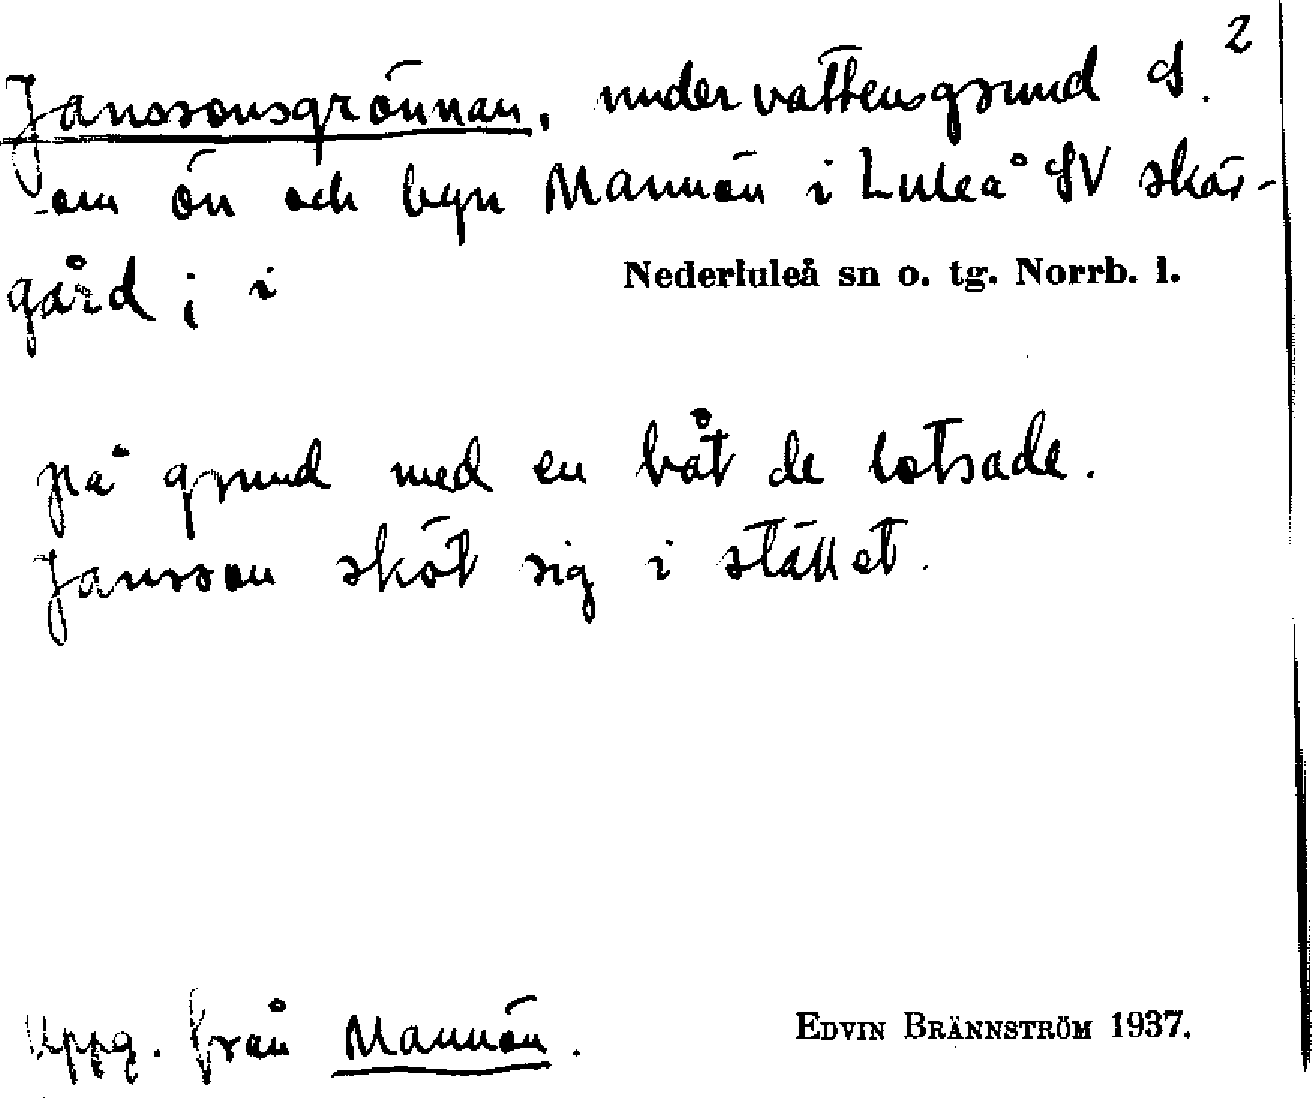 2
Janssonsgrönnan, undervattensgrund S.
om ön och byn Mannön i Luleå SV skär-
gård; i Nederluleå sn o. tg. Norrb. l.
på grund med en båt de lotsade.
Jansson sköt sig i stället.
Uppg. från Mannön.
EDVIN BRÄNNSTRÖM 1937.